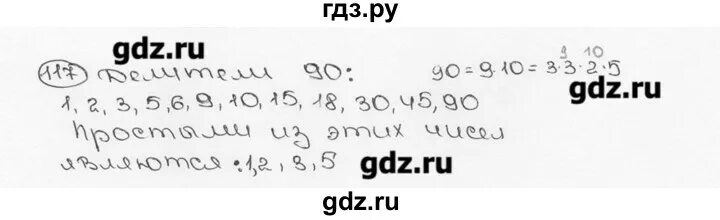 гдз.ру
gdz.ru
117 Делители 90: 90=9·10=3·3·2·5
9 10
gdz.ru
1, 2, 3, 5, 6, 9, 10, 15, 18, 30, 45, 90
Простыми из этих чисел
являются: 1, 2, 3, 5
gdz.ru
gdz.ru